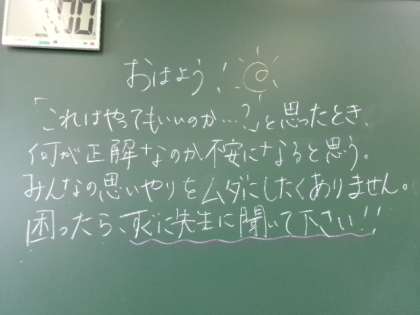 おはよう!
「これはやってもいいのか…?」と思ったとき、
何が正解なのか不安になると思う。
みんなの思いやりをムダにしたくありません。
困ったら、すぐに先生に聞いて下さい!!